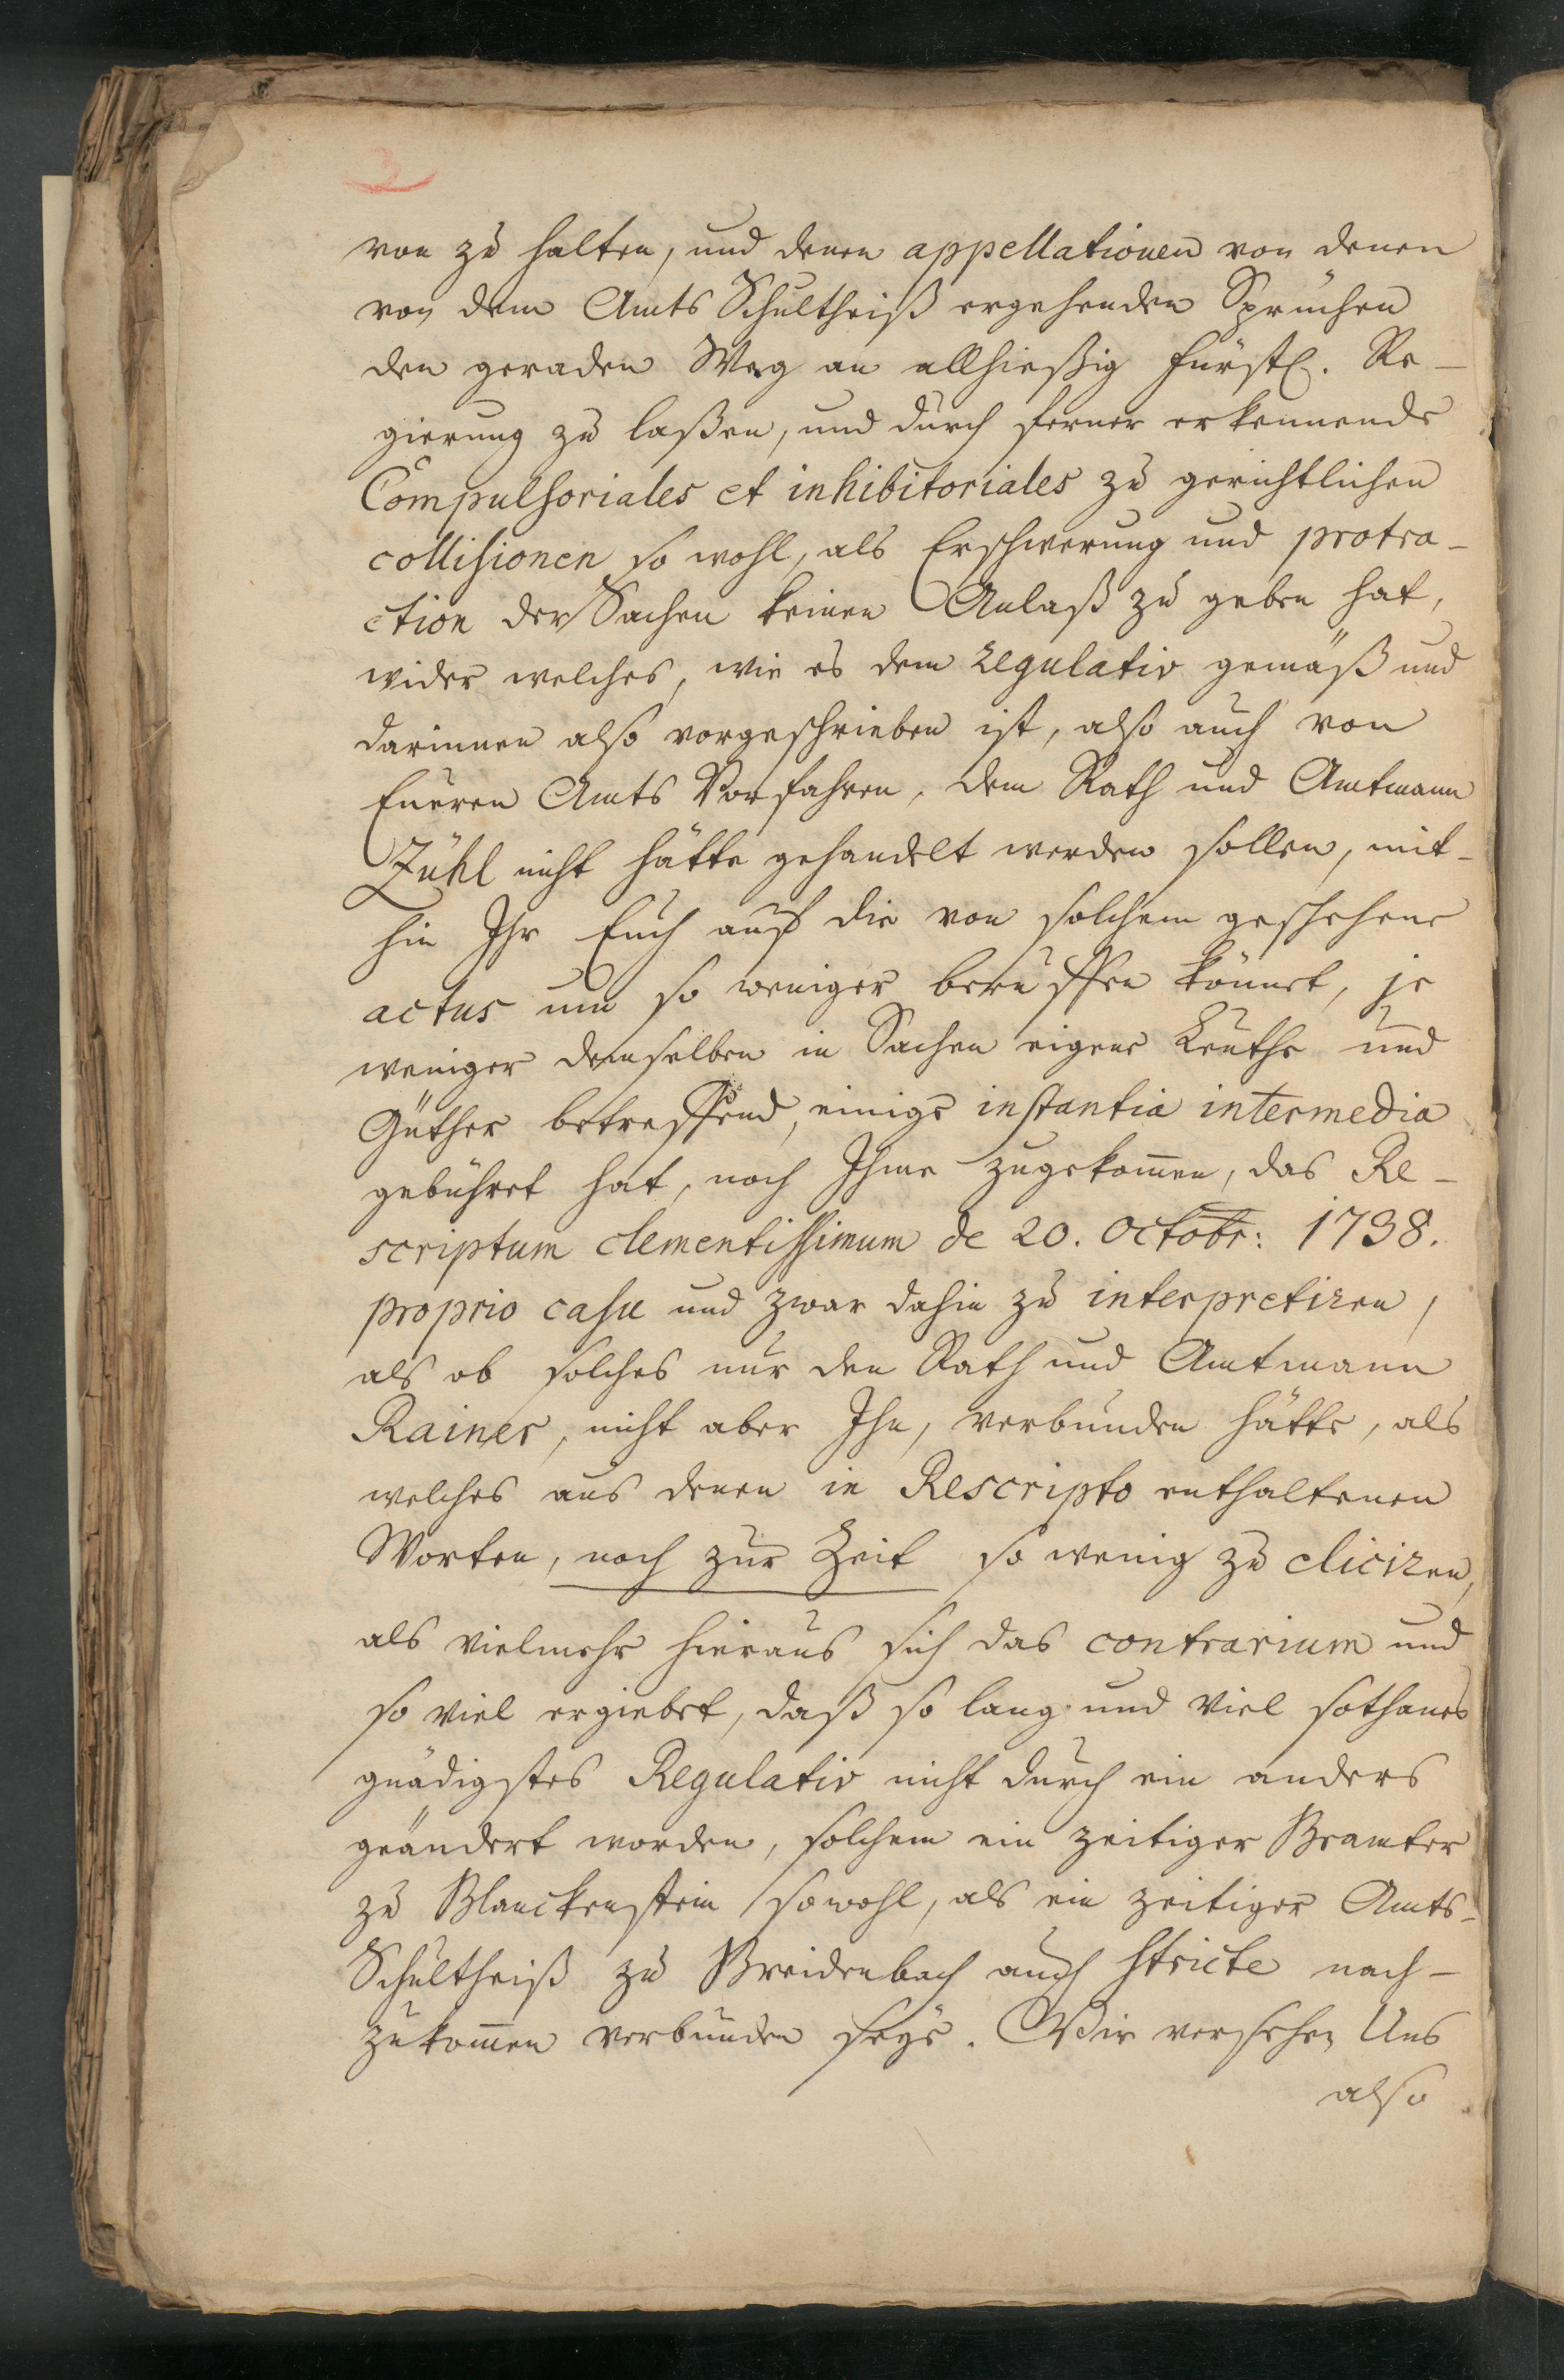 von zu halten, und denen appellationen von denen
von dem Amts Schultheiß ergehenden Sprüchen
den geraden Weg an allhießig Fürstl. Re-
gierung zu laßen, und durch ferner erkennende
Compulsoriales et inhibitoriales zu gerichtlichen
collisionen so wohl, als Erschwerung und protra-
ction der Sachen keinen Anlaß zu geben hat,
wider welches, wie es dem Regulativ gemäß und
darinnen also vorgeschrieben ist, also auch von
Eueren Amts Vorfahren, dem Rath und Amtmann
Zühl nicht hätte gehandelt werden sollen, mit-
hin Ihr Euch auf die von solchem geschehene
actus um so weniger beruffen könnet, je
weniger demselben in Sachen eigene Leuthe und
Güther betreffend, einige instantia intermedia
gebühret hat, noch Ihme zugekom̄en, das Re-
scriptum clementissimum de 20. Octobr: 1738.
proprio casu und zwar dahin zu interpretiren,
als ob solches nur den Rath und Amtmann
Rainer, nicht aber Ihn, verbunden hätte, als
welches aus denen in Rescripto enthaltenen
Worten, noch zur Zeit so wenig zu eliciren,
als vielmehr hieraus sich das contrarium und
so viel ergiebet, daß so lang und viel sothanes
gnädigstes Regulativ nicht durch ein anders
geändert worden, solchem ein zeitiger Beamter
zu Blanckenstein sowohl, als ein zeitiger Amts-
Schultheiß zu Breidenbach auch stricte nach-
zukom̄en verbunden seye. Wir versehen Uns
also